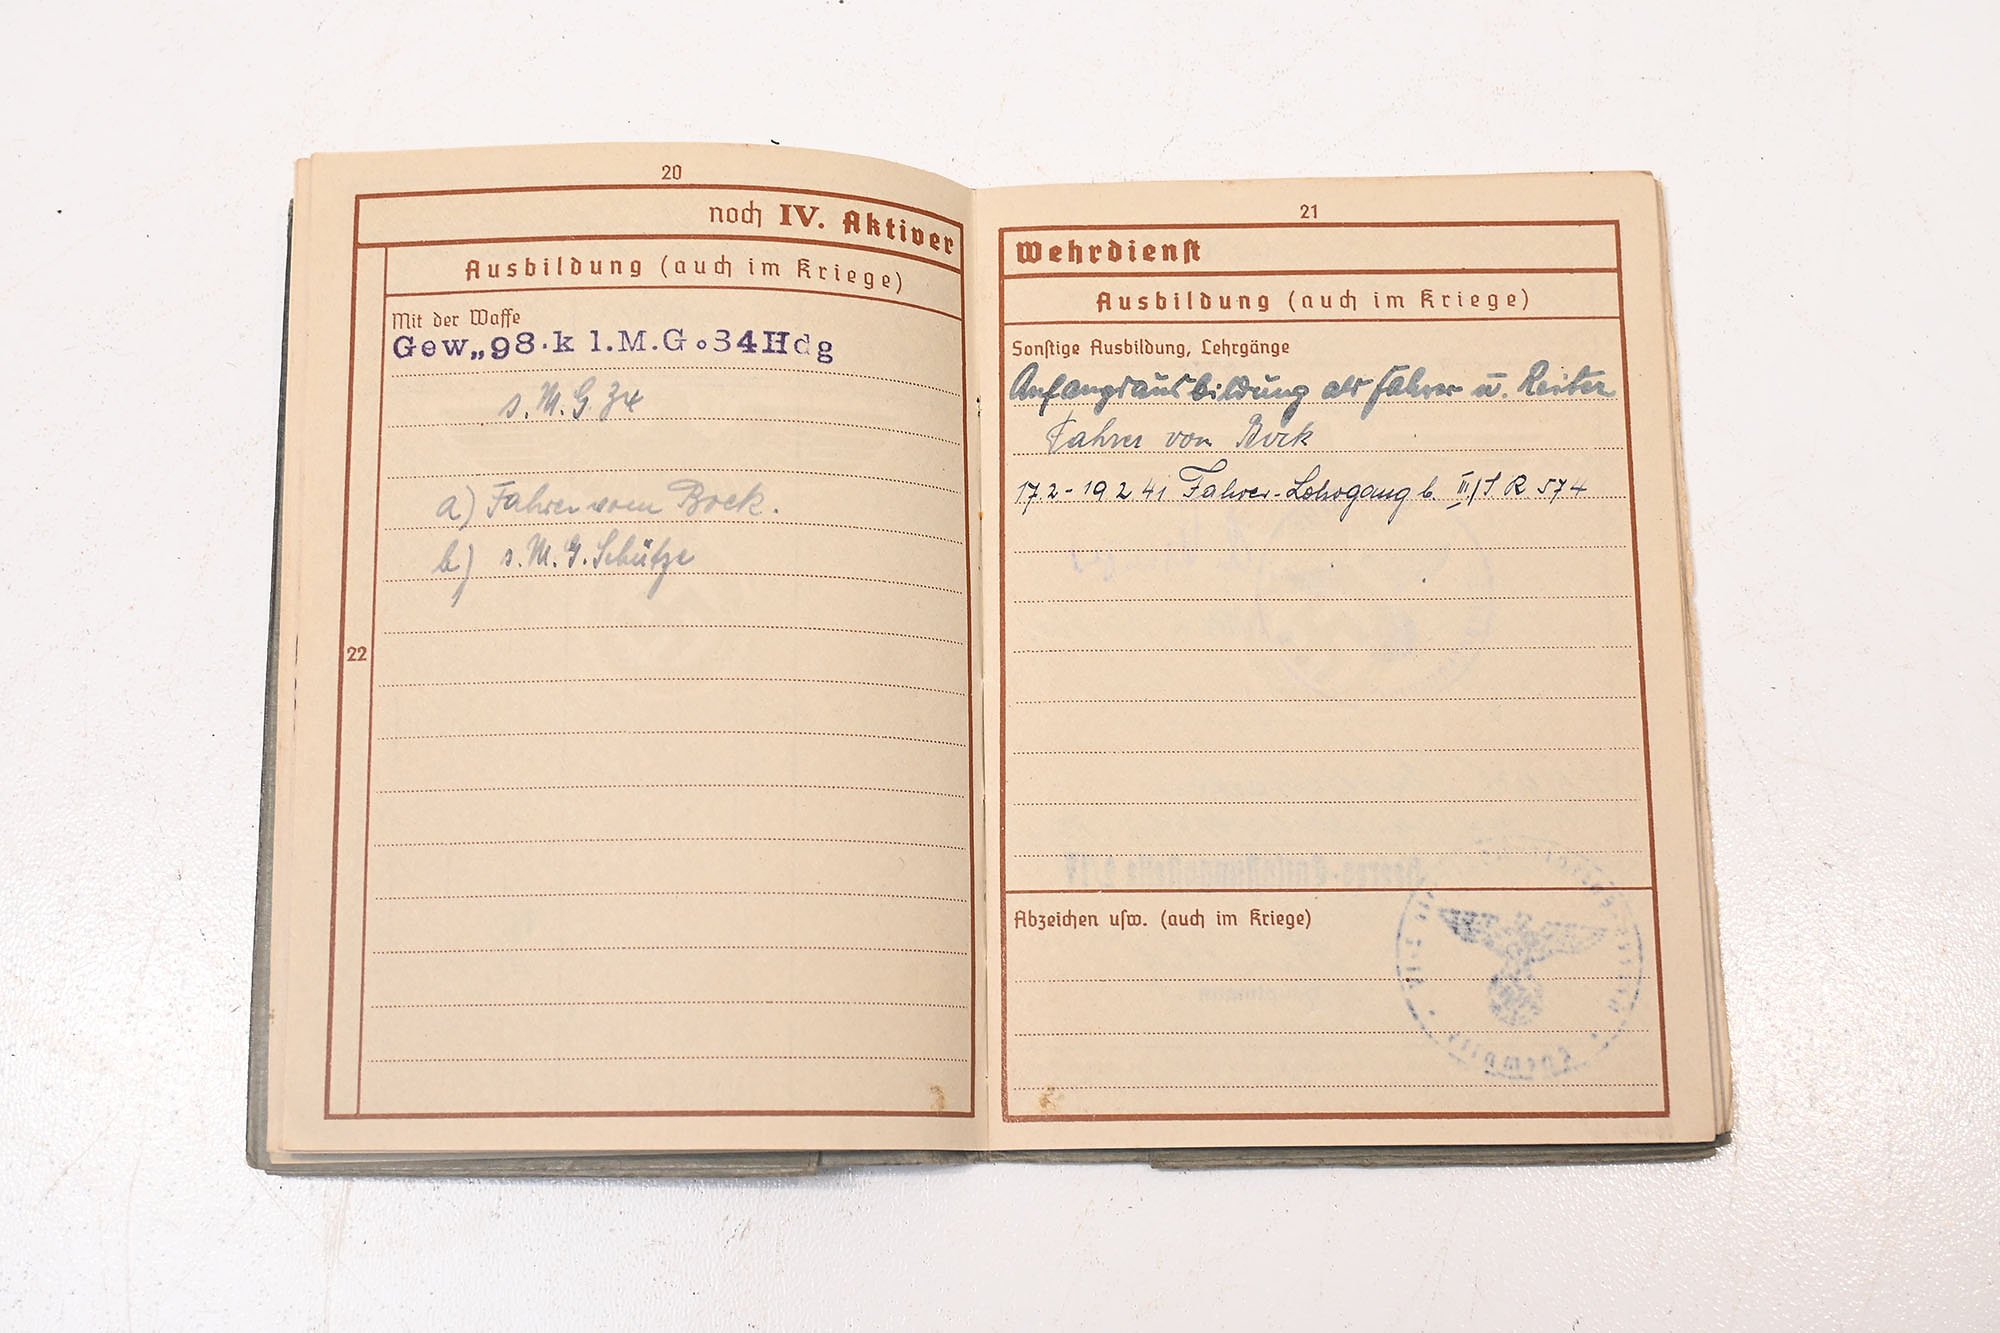 20
noch IV. Aktiver
Ausbildung (auch im Kriege)
22
Mit der Waffe
Gew„98.k l.M.G.34Hdg
s.M.G.34
a) Fahrer vom Bock.
b) s.M.G.Schütze
21
Wehrdienst
Ausbildung (auch im Kriege)
Sonstige Ausbildung, Lehrgänge
Anfangsausbildung als Fahrer u. Reiter
Fahrer von Bock
17.2-19 2 41 Fahrer-Lehrgang b. III/I R 574
Abzeichen usw. (auch im Kriege)